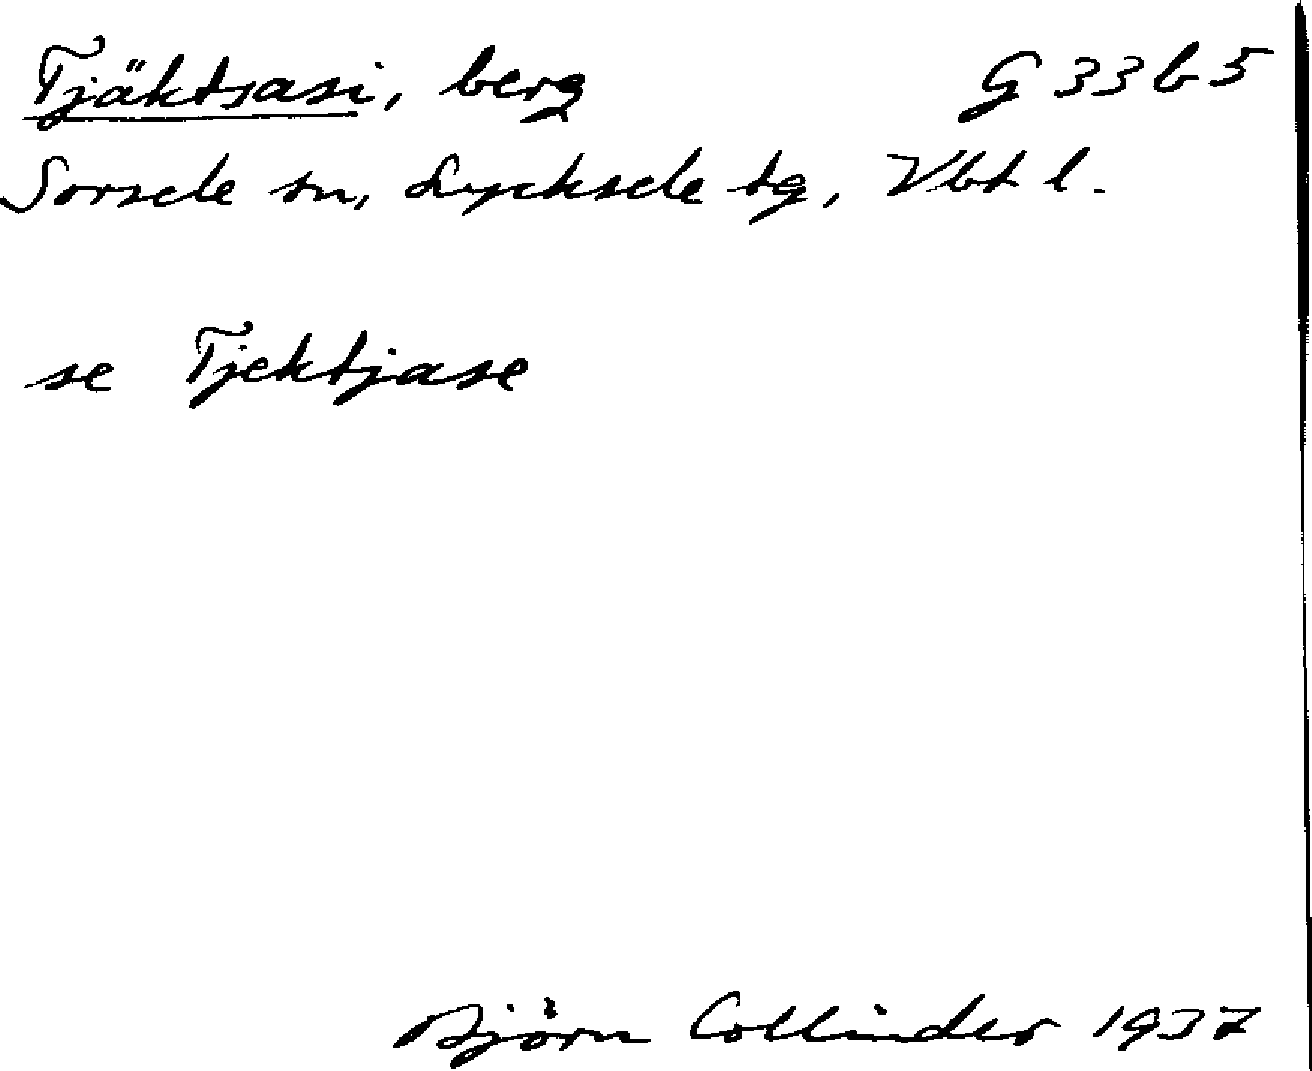 Tjäktsasi, berg G 33 b 5
Sorsele sn, Lycksele tg, Vbt l.
se Tjektjase
Björn Collinder 1937